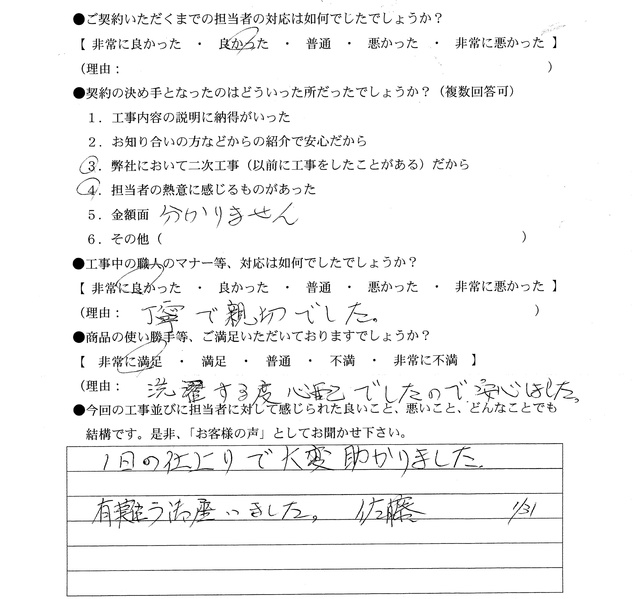 ●ご契約いただくまでの担当者の対応は如何でしたでしょうか？
【 非常に良かった ・ 良かった ・ 普通 ・ 悪かった ・ 非常に悪かった 】
（理由： ）
●契約の決め手となったのはどういった所だったでしょうか？（複数回答可）
１．工事内容の説明に納得がいった
２．お知り合いの方などからの紹介で安心だから
３．弊社において二次工事（以前に工事をしたことがある）だから
４．担当者の熱意に感じるものがあった
５．金額面 分かりません
６．その他（ ）
●工事中の職人のマナー等、対応は如何でしたでしょうか？
【 非常に良かった ・ 良かった ・ 普通 ・ 悪かった ・ 非常に悪かった 】
（理由： 丁寧で親切でした。 ）
●商品の使い勝手等、ご満足いただいておりますでしょうか？
【 非常に満足 ・ 満足 ・ 普通 ・ 不満 ・ 非常に不満 】
（理由： 洗濯する度心配でしたので安心しました。
●今回の工事並びに担当者に対して感じられた良いこと、悪いこと、どんなことでも
結構です。是非、「お客様の声」としてお聞かせ下さい。
1日の仕上りで大変助かりました。
有難う御座いました。 佐藤 1/31